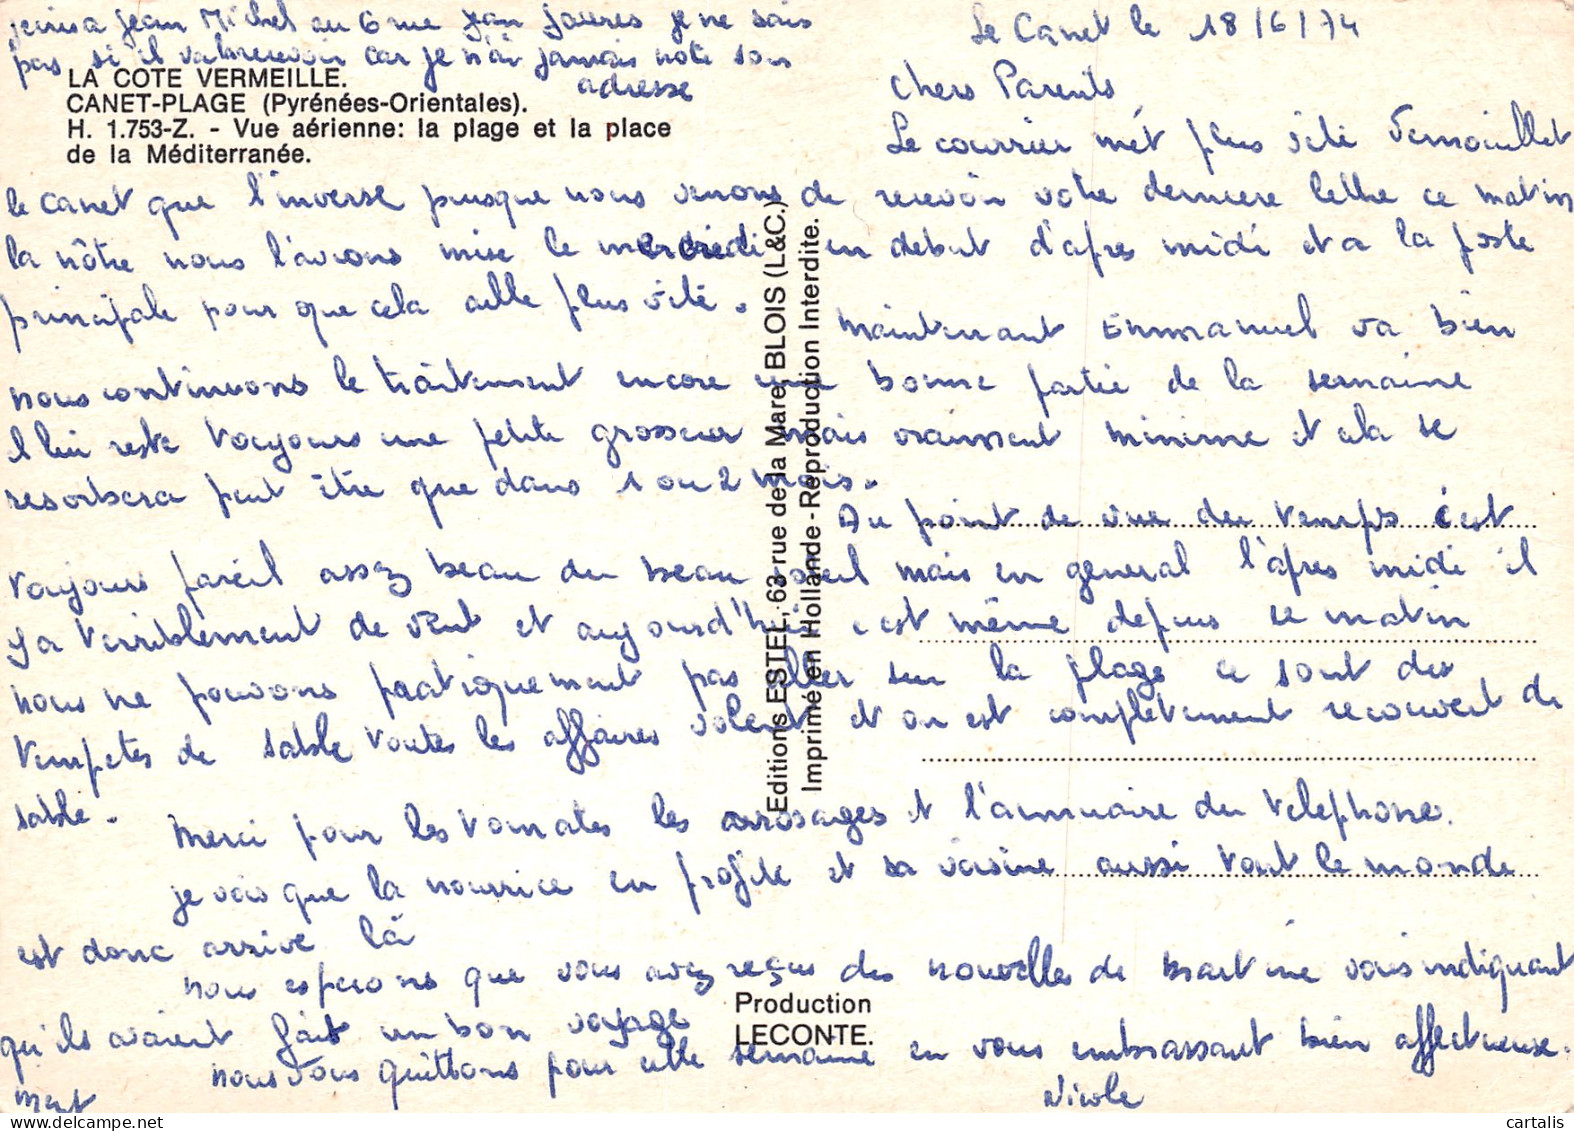 Le Canet le 18/6/74
Chers Parents
Le courrier met plus vite Vernouillet
le Canet que l'inverse puisque nous venons de recevoir votre derniere lettre ce matin
la nôtre nous l'avions mise le mercredi en debut d'apres midi et a la poste
principale pour que cela aille plus vite.
Maintenant Emmanuel va bien
nous continuons le traitement encore une bonne partie de la semaine
il lui reste toujours une petite grosseur mais vraiment minime et cela se
resorbera peut être que dans 1 ou 2 mois.
Au point de vue du temps c'est
toujours pareil assez beau du beau soleil mais en general l'apres midi il
y a terriblement de vent et aujourd'hui c'est même depuis ce matin
nous ne pouvons pratiquement pas aller sur la plage ce sont des
tempetes de sable toutes les affaires volent et on est completement recouvert de
sable.
Merci pour les tomates les arrosages et l'annuaire du telephone.
je vois que la nourrice en profite et sa voisine aussi tout le monde
est donc arrive là
nous esperons que vous avez reçus des nouvelles de Martine vous indiquant
qu'ils avaient fait un bon voyage
nous vous quittons pour cette semaine en vous embrassant bien affectueuse-
ment
Nicole
a Jean Michel au 6 rue Jean Jaures je ne sais
pas si il va la recevoir car je n'ai jamais note son
adresse
LA COTE VERMEILLE.
CANET-PLAGE (Pyrénées-Orientales).
H. 1.753-Z. - Vue aérienne: la plage et la place
de la Méditerranée.
Editions ESTEL, 63 rue de la Mare, BLOIS (L&C.)
Imprimé en Hollande - Reproduction Interdite.
Production
LECONTE.
cartalis